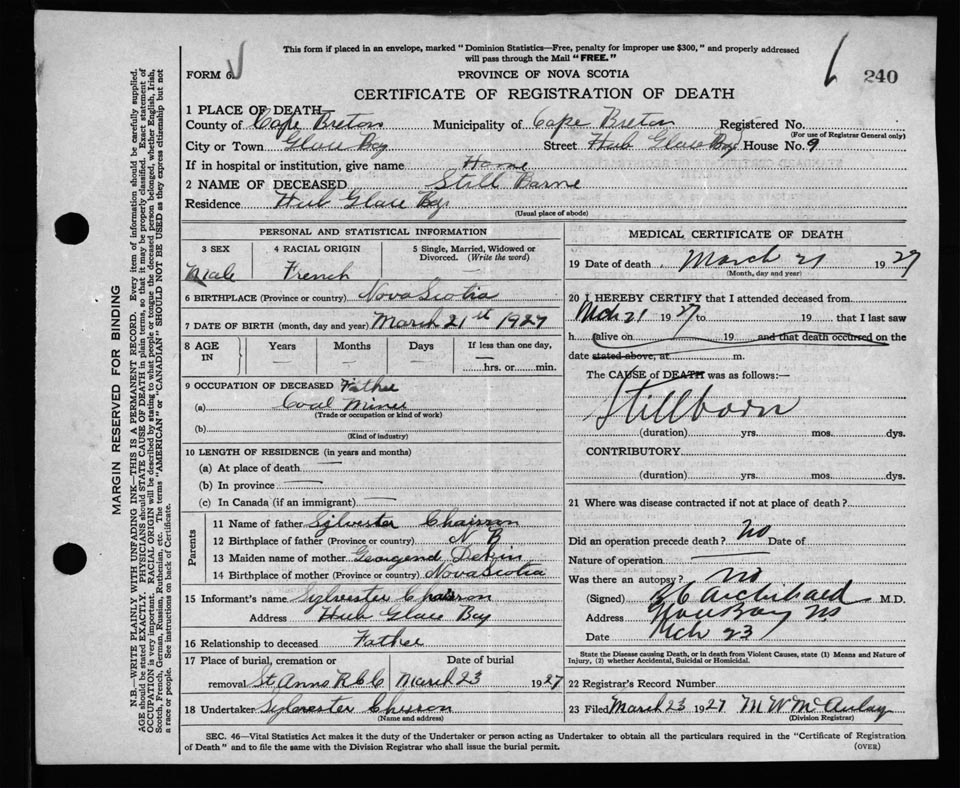 This form if placed in an envelope, marked "Dominion Statistics—Free, penalty for improper use $300," and properly addressed
will pass through the Mail "FREE."
FORM 6.
PROVINCE OF NOVA SCOTIA
240
CERTIFICATE OF REGISTRATION OF DEATH
1 PLACE OF DEATH
County of Cape Breton Municipality of Cape Breton Registered No.
(For use of Registrar General only)
City or Town Glace Bay Street Hub Glace Bay House No. 9
If in hospital or institution, give name Home
2 NAME OF DECEASED Still Barne
Residence Hub Glace Bay
(Usual place of abode)
PERSONAL AND STATISTICAL INFORMATION
3 SEX 4 RACIAL ORIGIN 5 Single, Married, Widowed or
Divorced. (Write the word)
Male French —
6 BIRTHPLACE (Province or country) Nova Scotia
7 DATE OF BIRTH (month, day and year) March 21st 1927
8 AGE
IN
Years Months Days If less than one day,
— — — —
hrs. or min.
9 OCCUPATION OF DECEASED Father
(a) Coal Miner
(Trade or occupation or kind of work)
(b)
(Kind of industry)
10 LENGTH OF RESIDENCE (in years and months)
(a) At place of death —
(b) In province —
(c) In Canada (if an immigrant) —
Parents
11 Name of father Sylvester Chaisson
12 Birthplace of father (Province or country) N B
13 Maiden name of mother
14 Birthplace of mother (Province or country) Nova Scotia
15 Informant's name Sylvester Chaisson
Address Hub Glace Bay
16 Relationship to deceased Father
17 Place of burial, cremation or Date of burial
removal St Anns R C C March 23 1927
18 Undertaker Sylvester Chisson
(Name and address)
MEDICAL CERTIFICATE OF DEATH
19 Date of death March 21 1927
(Month, day and year)
20 I HEREBY CERTIFY that I attended deceased from
Mch 21 1927 to 19 that I last saw
h alive on 19 and that death occurred on the
date stated above, at m.
The CAUSE of DEATH was as follows:—
Stillborn
(duration) yrs. mos. dys.
CONTRIBUTORY
(duration) yrs. mos. dys.
21 Where was disease contracted if not at place of death?
Did an operation precede death? No Date of
Nature of operation
Was there an autopsy? No
(Signed) Archibald M.D.
Address Glace Bay NS
Date Mch 23
State the Disease causing Death, or in death from Violent Causes, state (1) Means and Nature of
Injury, (2) whether Accidental, Suicidal or Homicidal.
22 Registrar's Record Number
23 Filed March 23 1927 M W McAulay
(Division Registrar)
SEC. 46—Vital Statistics Act makes it the duty of the Undertaker or person acting as Undertaker to obtain all the particulars required in the "Certificate of Registration
of Death" and to file the same with the Division Registrar who shall issue the burial permit.
(OVER)
MARGIN RESERVED FOR BINDING
N.B.—WRITE PLAINLY WITH UNFADING INK—THIS IS A PERMANENT RECORD. Every item of information should be carefully supplied.
AGE should be stated EXACTLY. PHYSICIANS should STATE CAUSE OF DEATH in plain terms, so that it may be properly classified. Exact statement of
OCCUPATION is very important. RACIAL ORIGIN will be described by stating to what people or tongue the deceased person belonged, whether English, Irish,
Scotch, French, German, Russian, Ruthenian, etc. The terms "AMERICAN" or "CANADIAN" SHOULD NOT BE USED as they express citizenship but not
a race or people. See instructions on back of Certificate.